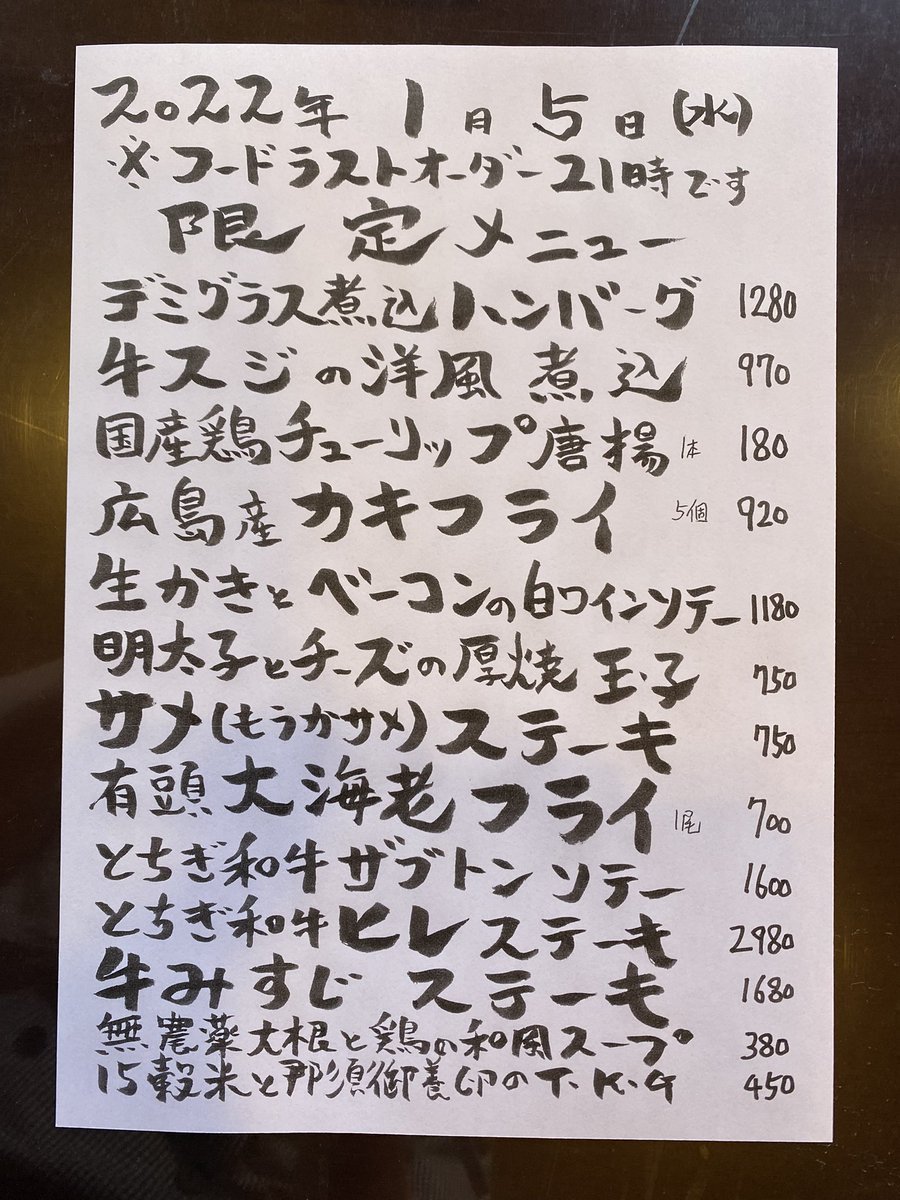 2022年 1月 5日(水)
※フードラストオーダー21時です
限定メニュー
デミグラス煮込ハンバーグ 1280
牛スジの洋風煮込 970
国産鶏チューリップ唐揚 1本 180
広島産カキフライ 5個 920
生かきとベーコンの白ワインソテー 1180
明太子とチーズの厚焼玉子 750
サメ(もうかサメ)ステーキ 750
有頭大海老フライ 1尾 700
とちぎ和牛ザブトンソテー 1600
とちぎ和牛ヒレステーキ 2980
牛みすじステーキ 1680
無農薬大根と鶏の和風スープ 380
15穀米と那須御養卵のT.K.G 450